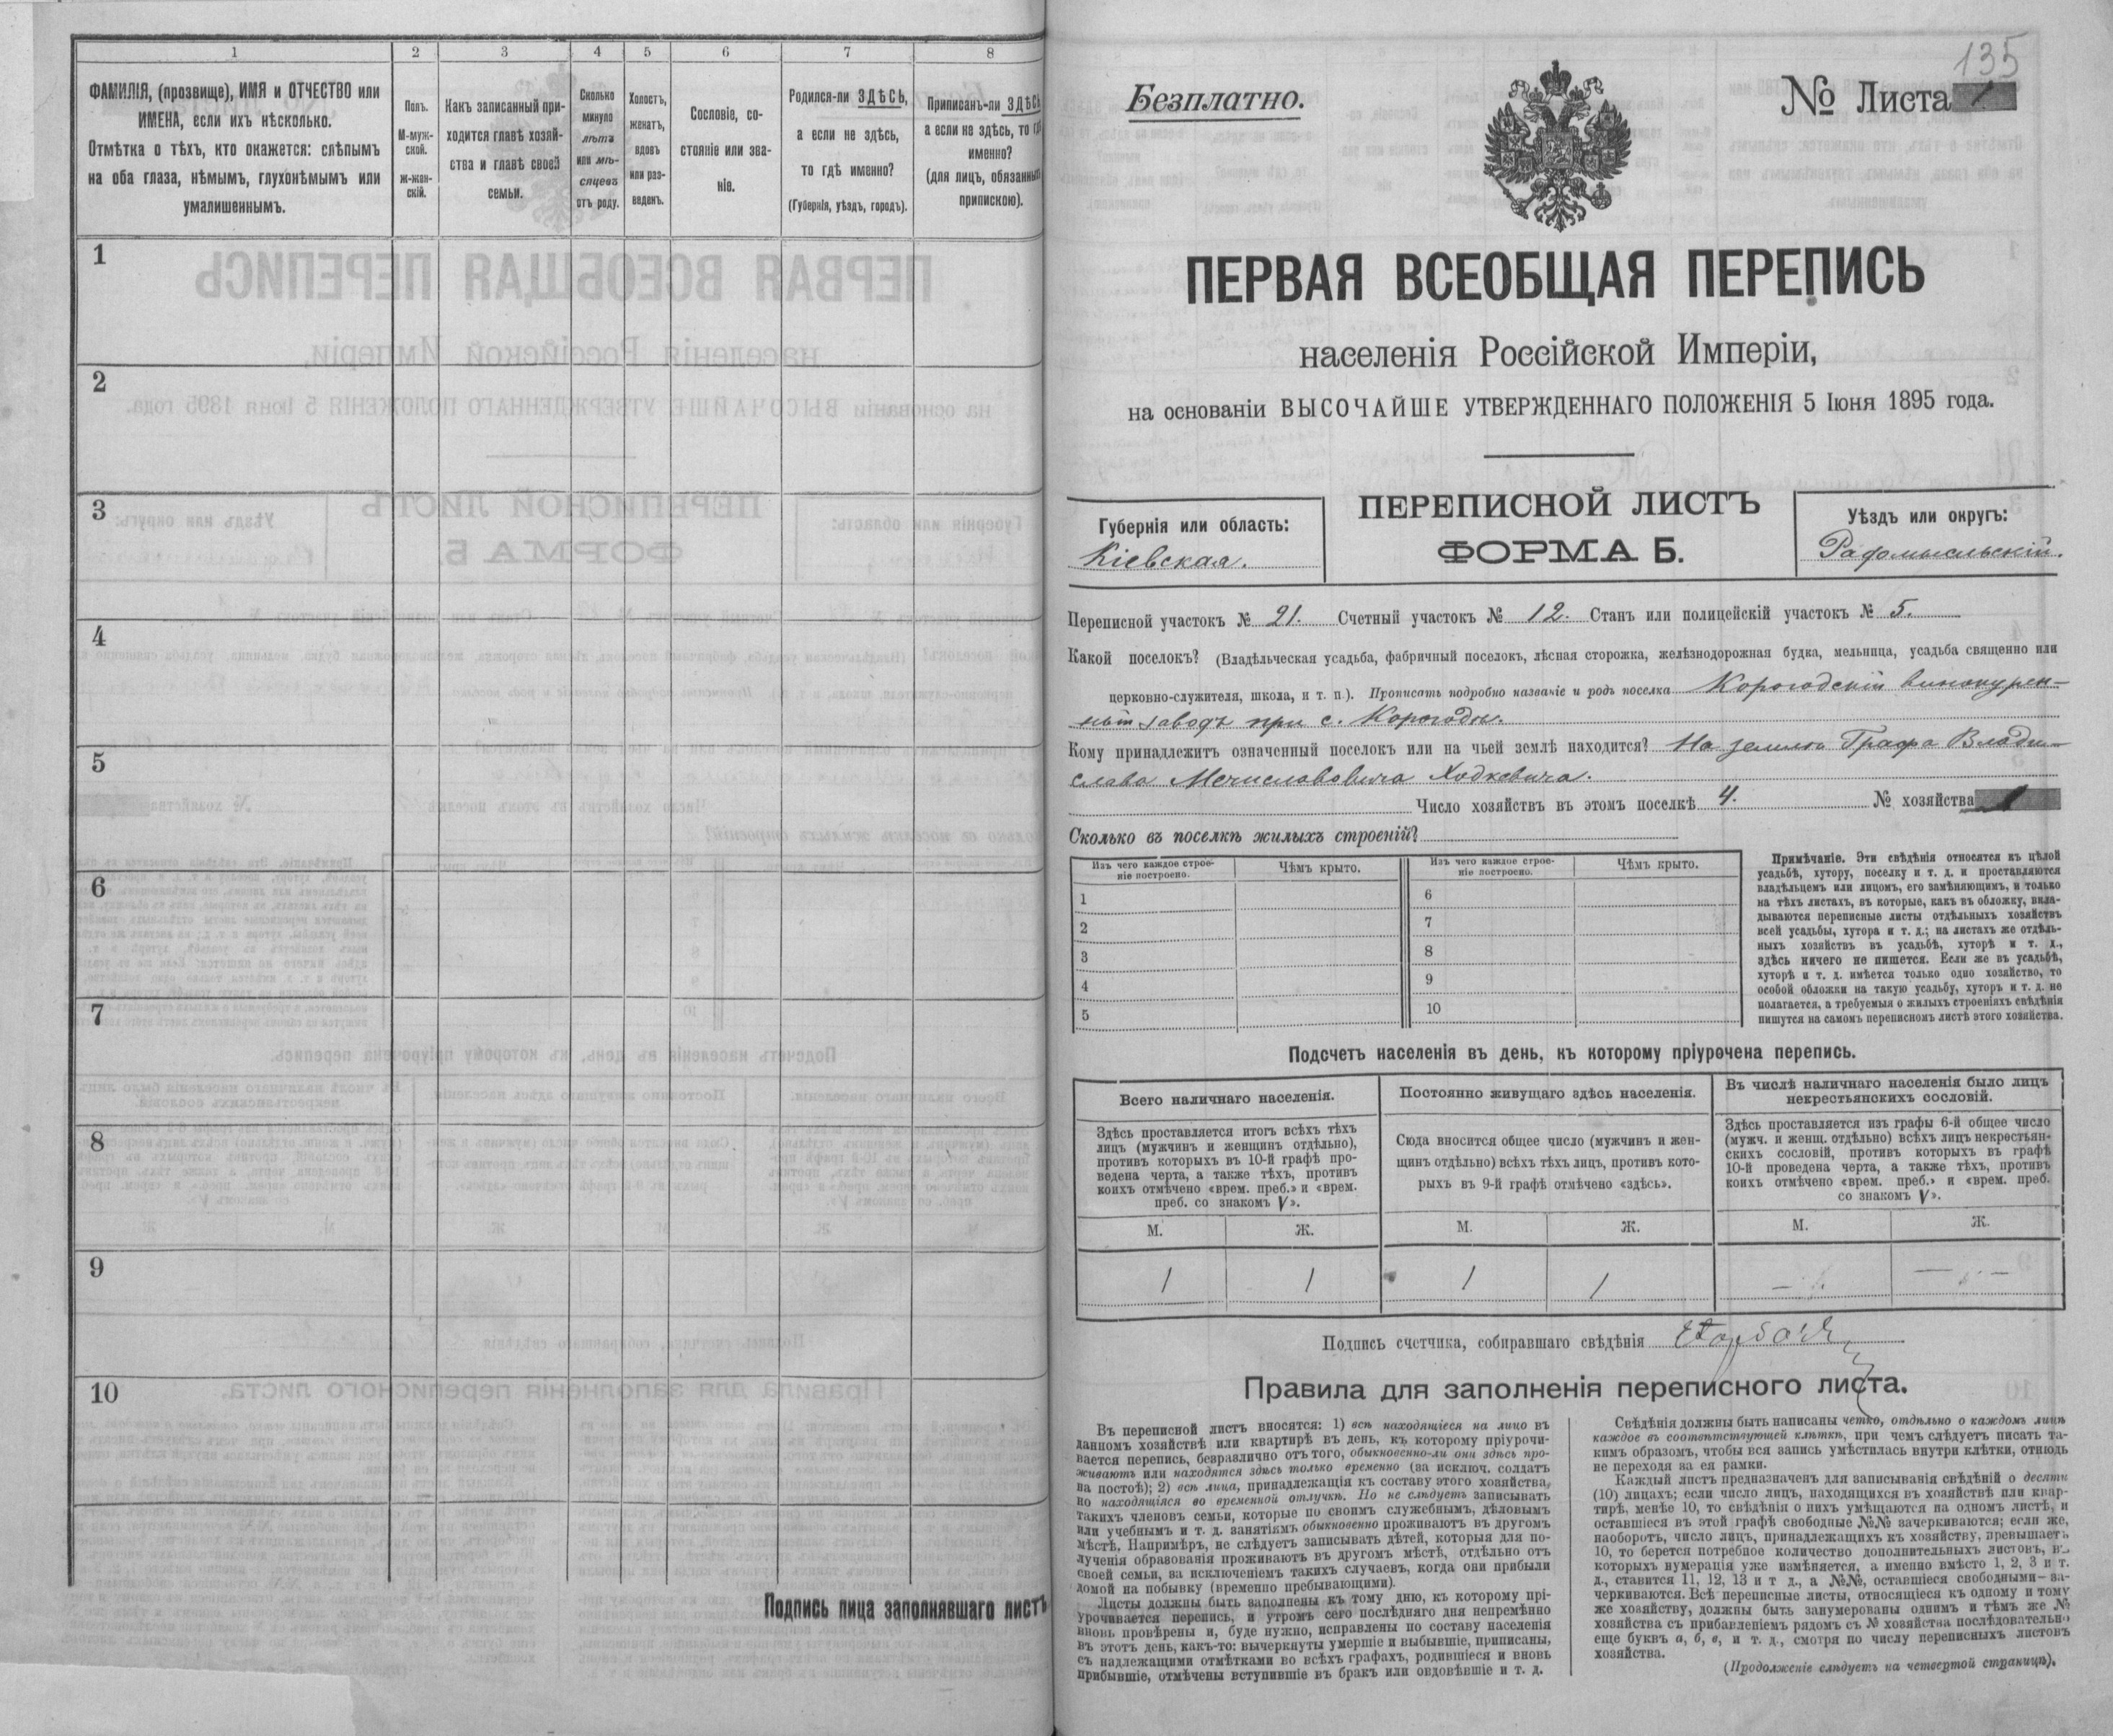 1 2 3 4 5 6 7 8
ФАМИЛІЯ, (прозвище), ИМЯ и ОТЧЕСТВО или
ИМЕНА, если ихъ нѣсколько.
Отмѣтка о тѣхъ, кто окажется: слѣпымъ
на оба глаза, нѣмымъ, глухонѣмымъ или
умалишеннымъ.
Полъ.
М-муж-
ской.
Ж-жен-
скій.
Какъ записанный при-
ходится главѣ хозяй-
ства и главѣ своей
семьи.
Сколько
минуло
лѣтъ
или мѣ-
сяцевъ
отъ роду.
Холостъ,
женатъ,
вдовъ
или раз-
веденъ.
Сословіе, со-
стояніе или зва-
ніе.
Родился-ли ЗДѢСЬ,
а если не здѣсь,
то гдѣ именно?
(Губернія, уѣздъ, городъ).
Приписанъ-ли ЗДѢСЬ
а если не здѣсь, то гдѣ
именно?
(для лицъ, обязанныхъ
припискою).
1
2
3
4
5
6
7
8
9
10
Подпись лица заполнявшаго листъ
135
Безплатно.
№ Листа 1
ПЕРВАЯ ВСЕОБЩАЯ ПЕРЕПИСЬ
населенія Россійской Имперіи,
на основаніи ВЫСОЧАЙШЕ УТВЕРЖДЕННАГО ПОЛОЖЕНІЯ 5 Іюня 1895 года.
Губернія или область:
Кіевская.
ПЕРЕПИСНОЙ ЛИСТЪ
ФОРМА Б.
Уѣздъ или округъ:
Радомысльскій.
Переписной участокъ № 21. Счетный участокъ № 12. Станъ или полицейскій участокъ № 5.
Какой поселокъ? (Владѣльческая усадьба, фабричный поселокъ, лѣсная сторожка, желѣзнодорожная будка, мельница, усадьба священно или
церковно-служителя, школа, и т. п.). Прописать подробно названіе и родъ поселка Корогодскій винокурен-
ный заводъ при с. Корогодъ.
Кому принадлежитъ означенный поселокъ или на чьей землѣ находится? На землѣ Графа Влади-
слава Мечиславовича Ходкевича.
Число хозяйствъ въ этомъ поселкѣ 4. № хозяйства 1
Сколько въ поселкѣ жилыхъ строеній?
Изъ чего каждое строе-
ніе построено.
Чѣмъ крыто.
Изъ чего каждое строе-
ніе построено.
Чѣмъ крыто.
1 6
2 7
3 8
4 9
5 10
Примѣчаніе. Эти свѣдѣнія относятся къ цѣлой
усадьбѣ, хутору, поселку и т. д. и проставляются
владѣльцемъ или лицомъ, его замѣняющимъ, и только
на тѣхъ листахъ, въ которые, какъ въ обложку, вкла-
дываются переписные листы отдѣльныхъ хозяйствъ
всей усадьбы, хутора и т. д.; на листахъ же отдѣль-
ныхъ хозяйствъ въ усадьбѣ, хуторѣ и т. д.,
здѣсь ничего не пишется. Если же въ усадьбѣ,
хуторѣ и т. д. имѣется только одно хозяйство, то
особой обложки на такую усадьбу, хуторъ и т. д. не
полагается, а требуемыя о жилыхъ строеніяхъ свѣдѣнія
пишутся на самомъ переписномъ листѣ этого хозяйства.
Подсчетъ населенія въ день, къ которому пріурочена перепись.
Всего наличнаго населенія.
Здѣсь проставляется итогъ всѣхъ тѣхъ
лицъ (мужчинъ и женщинъ отдѣльно),
противъ которыхъ въ 10-й графѣ про-
ведена черта, а также тѣхъ, противъ
коихъ отмѣчено «врем. преб.» и «врем.
преб. со знакомъ V».
Постоянно живущаго здѣсь населенія.
Сюда вносится общее число (мужчинъ и жен-
щинъ отдѣльно) всѣхъ тѣхъ лицъ, противъ кото-
рыхъ въ 9-й графѣ отмѣчено «здѣсь».
Въ числѣ наличнаго населенія было лицъ
некрестьянскихъ сословій.
Здѣсь проставляется изъ графы 6-й общее число
(мужч. и женщ. отдѣльно) всѣхъ лицъ некрестьян-
скихъ сословій, противъ которыхъ въ графѣ
10-й проведена черта, а также тѣхъ, противъ
коихъ отмѣчено «врем. преб.» и «врем. преб.
со знакомъ V».
М. Ж. М. Ж. М. Ж.
1 1 1 1
Подпись счетчика, собиравшаго свѣдѣнія
Правила для заполненія переписного листа.
Въ переписной листъ вносятся: 1) всѣ находящіеся на лицо въ
данномъ хозяйствѣ или квартирѣ въ день, къ которому пріурочи-
вается перепись, безразлично отъ того, обыкновенно-ли они здѣсь про-
живаютъ или находятся здѣсь только временно (за исключ. солдатъ
на постоѣ); 2) всѣ лица, принадлежащія къ составу этого хозяйства,
но находящіяся во временной отлучкѣ. Но не слѣдуетъ записывать
такихъ членовъ семьи, которые по своимъ служебнымъ, дѣловымъ
или учебнымъ и т. д. занятіямъ обыкновенно проживаютъ въ другомъ
мѣстѣ. Напримѣръ, не слѣдуетъ записывать дѣтей, которыя для по-
лученія образованія проживаютъ въ другомъ мѣстѣ, отдѣльно отъ
своей семьи, за исключеніемъ такихъ случаевъ, когда они прибыли
домой на побывку (временно пребывающими).
Листы должны быть заполнены къ тому дню, къ которому прі-
урочивается перепись, и утромъ сего послѣдняго дня непремѣнно
вновь провѣрены и, буде нужно, исправлены по составу населенія
въ этотъ день, какъ-то: вычеркнуты умершіе и выбывшіе, приписаны,
съ надлежащими отмѣтками во всѣхъ графахъ, родившіеся и вновь
прибывшіе, отмѣчены вступившіе въ бракъ или овдовѣвшіе и т. д.
Свѣдѣнія должны быть написаны четко, отдѣльно о каждомъ лицѣ
каждое въ соотвѣтствующей клѣткѣ, при чемъ слѣдуетъ писать та-
кимъ образомъ, чтобы вся запись умѣстилась внутри клѣтки, отнюдь
не переходя за ея рамки.
Каждый листъ предназначенъ для записыванія свѣдѣній о десяти
(10) лицахъ; если число лицъ, находящихся въ хозяйствѣ или квар-
тирѣ, менѣе 10, то свѣдѣнія о нихъ умѣщаются на одномъ листѣ, и
оставшіеся въ этой графѣ свободные №№ зачеркиваются; если же,
наоборотъ, число лицъ, принадлежащихъ къ хозяйству, превышаетъ
10, то берется потребное количество дополнительныхъ листовъ, въ
которыхъ нумерація уже измѣняется, а именно вмѣсто 1, 2, 3 и т.
д., ставится 11, 12, 13 и т д., а №№, оставшіеся свободными—за-
черкиваются. Всѣ переписные листы, относящіеся къ одному и тому
же хозяйству, должны быть занумерованы однимъ и тѣмъ же №
хозяйства съ прибавленіемъ рядомъ съ № хозяйства послѣдовательно
еще буквъ а, б, в, и т. д., смотря по числу переписныхъ листовъ
хозяйства.
(Продолженіе слѣдуетъ на четвертой страницѣ).